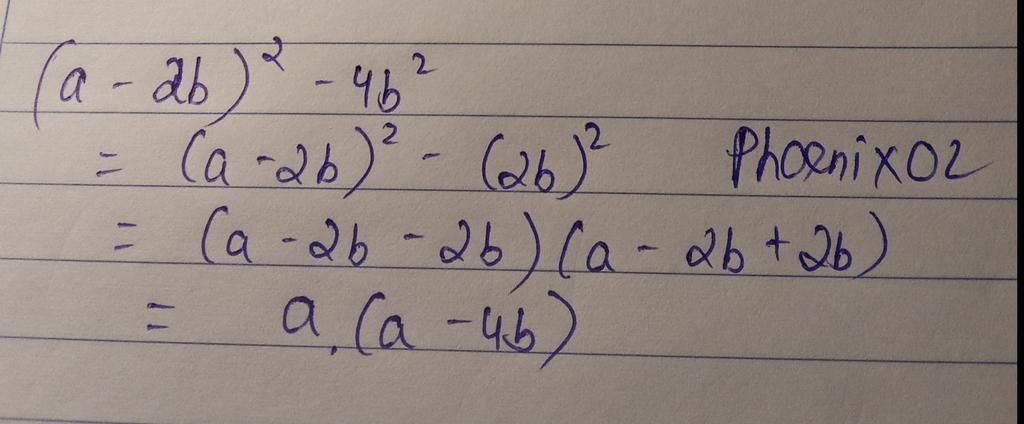 (a - 2b)² - 4b²
= (a - 2b)² - (2b)² Phoenix02
= (a - 2b - 2b) (a - 2b + 2b)
= a. (a - 4b)